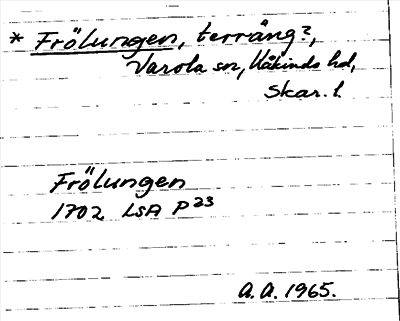 * Frölungen, terräng?,
Varola sn, Kåkinds hd,
Skar. l.
Frölungen
1702 LSA P23
A.A. 1965.